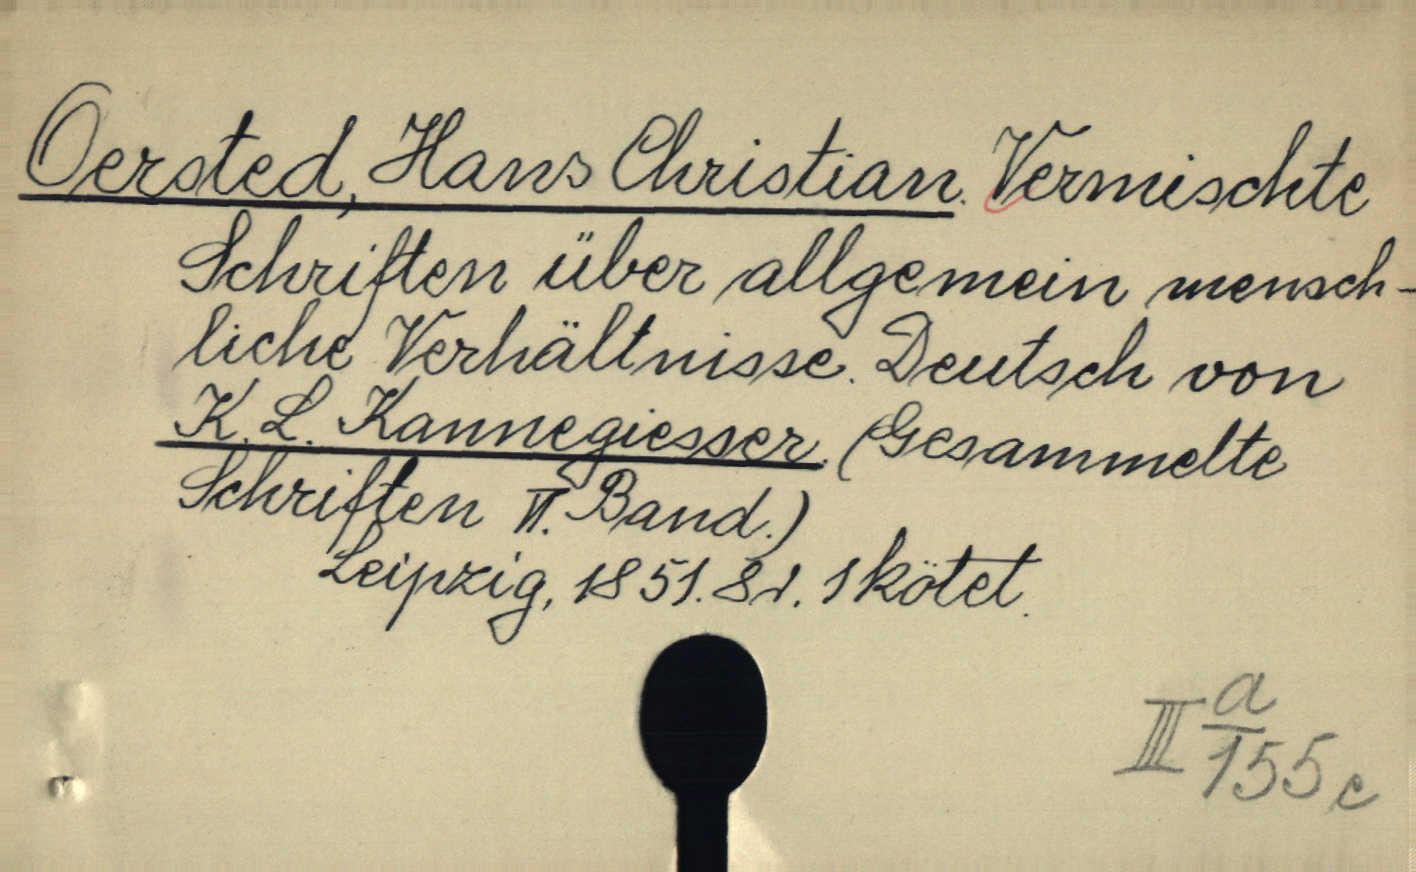 Oersted, Hans Christian. Vermischte
Schriften über allgemein mensch-
liche Verhältnisse. Deutsch von
K. L. Kannegiesser. (Gesammelte
Schriften VI. Band.)
Leipzig, 1851. 8r. 1 kötet.
III a/155 c